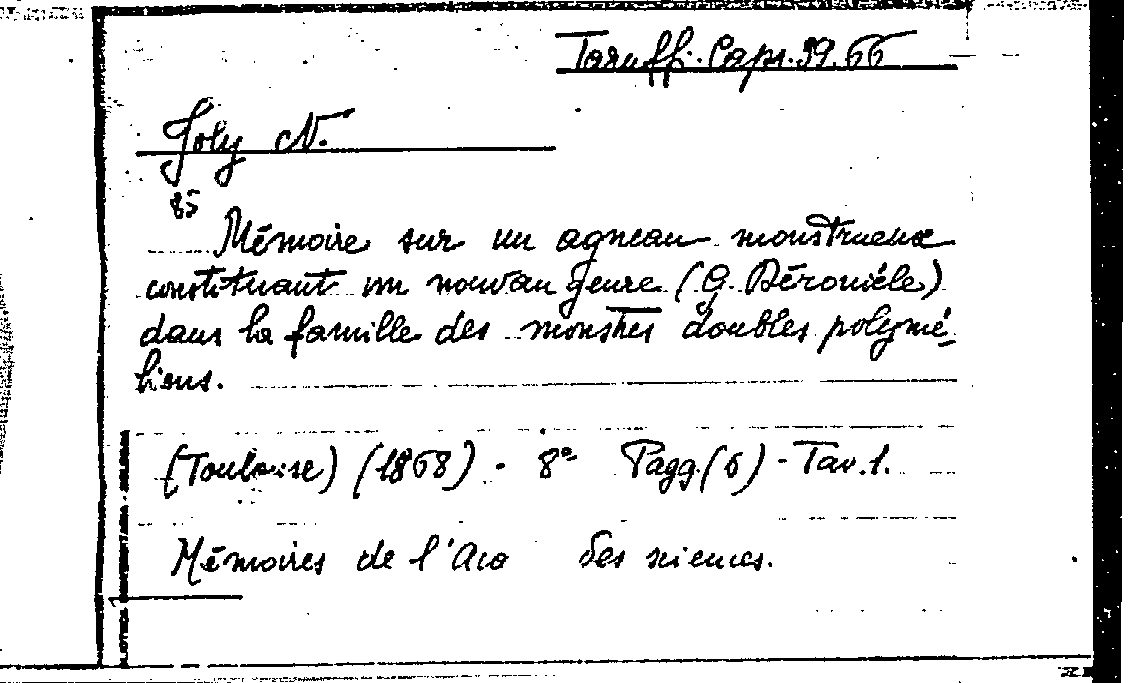 Taruffi. Caps. 39. 66
Joly N.
85
Mémoire sur un agneau monstrueux
constituant un nouveau genre (G. Dérouièle)
dans la famille des monstres doubles polymé-
liens.
(Toulouse) (1868) - 8° Pagg. (6) - Tav. 1.
Mémoires de l'Aca des sciences.
BIBLIOTECA UNIVERSITARIA - BOLOGNA